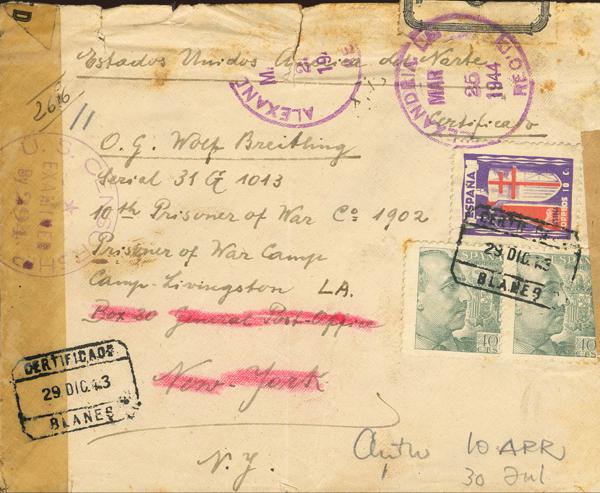 Estados Unidos America del Norte
ALEXAN
MAR 25 1944
REC'D
Certificado
2616
11
O. G. Wolf Breitling
Serial 31 G 1013
10th Prisoner of War Cº 1902
Prisoner of War Camp
Camp Livingston LA.
Box 20 General Post-Office
New-York
N. Y.
U. S. CENSORSHIP
EXAMINED
BY
ESPAÑA
CORREOS 10 C.
29 DIC. 43
BLANES
ESPAÑA
40
40
CERTIFICADO
29 DIC. 43
BLANES
10 APR
30 Jul